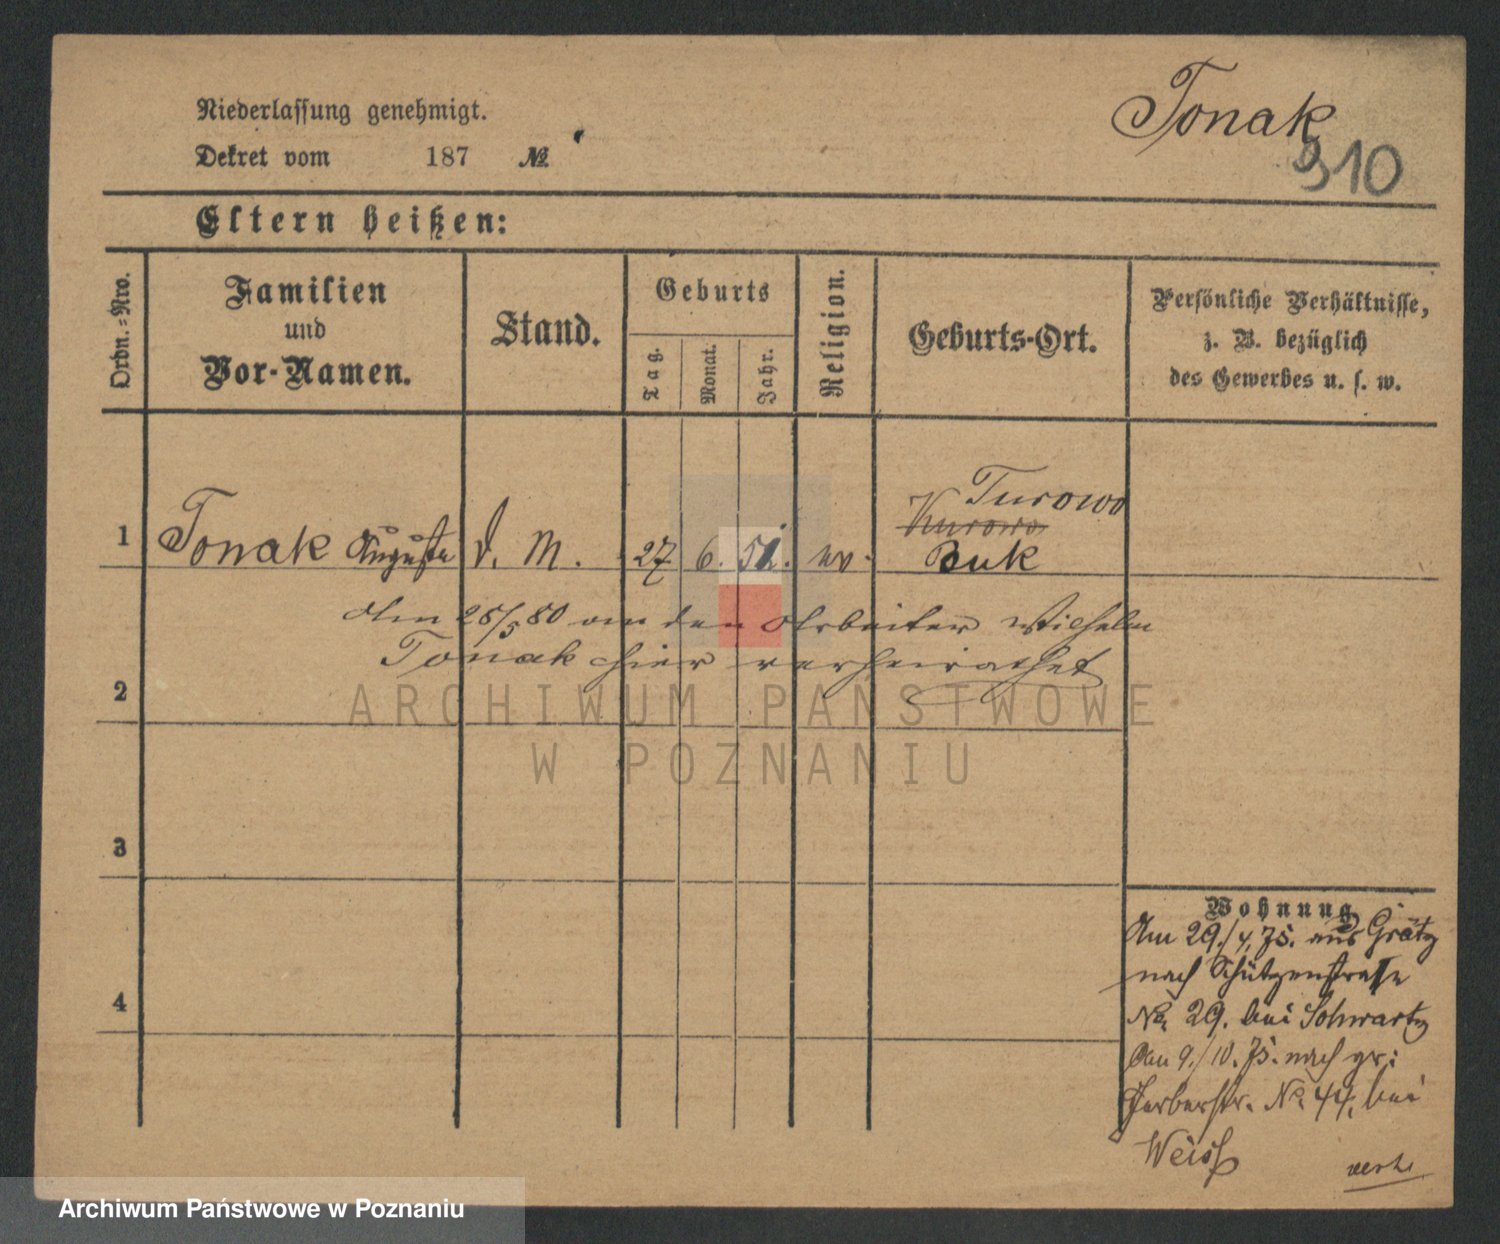 Tonak
910
Niederlassung genehmigt.
Dekret vom 187 №
Eltern heißen:
Ordn.-Nro.
Familien
und
Vor-Namen.
Stand.
Geburts
Tag.
Monat.
Jahr.
Religion.
Geburts-Ort.
Persönliche Verhältnisse,
z. B. bezüglich
des Gewerbes u. s. w.
Turowo
Kurowo
1 Tonak Auguste D. M. 27. 6. 52. ev. Buk
Am 25/5 80 an den Arbeiter Wilhelm
Tonak hier verheirathet
2
3
4
Wohnung
Am 29./4. 75. aus Grätz
nach Schützenstraße
No. 29. bei Schwartz
Am 9./10. 75. nach gr:
Gerberstr. No. 44. bei
Weiss
verte
ARCHIWUM PAŃSTWOWE
W POZNANIU
Archiwum Państwowe w Poznaniu